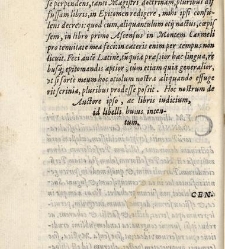 se perpendens, tanti Magistri doctrinam, pluribus dif
fusam libris, in Epitomen redigere, mihi ipsi consu
lens decrevi: quod cum aliquantulum otij nactus, coepis
sem, in libro primo Ascensus in Montem Carmeli
pro tenuitate mea feci: in caeteris enim per tempus non
licuit. Feci autem Latine, in quis praesior hac lingua, re
bus, epitomandis aptior, cum etiam quia generalior,
ut si forte meum hoc otiolum nostra aliquando effuge
rit scrinia, pluribus prodesse possit. Hoc nostrum de
Auctore ipso, ac libris iudicium,
id libelli huius inten-
tum.
CEN-